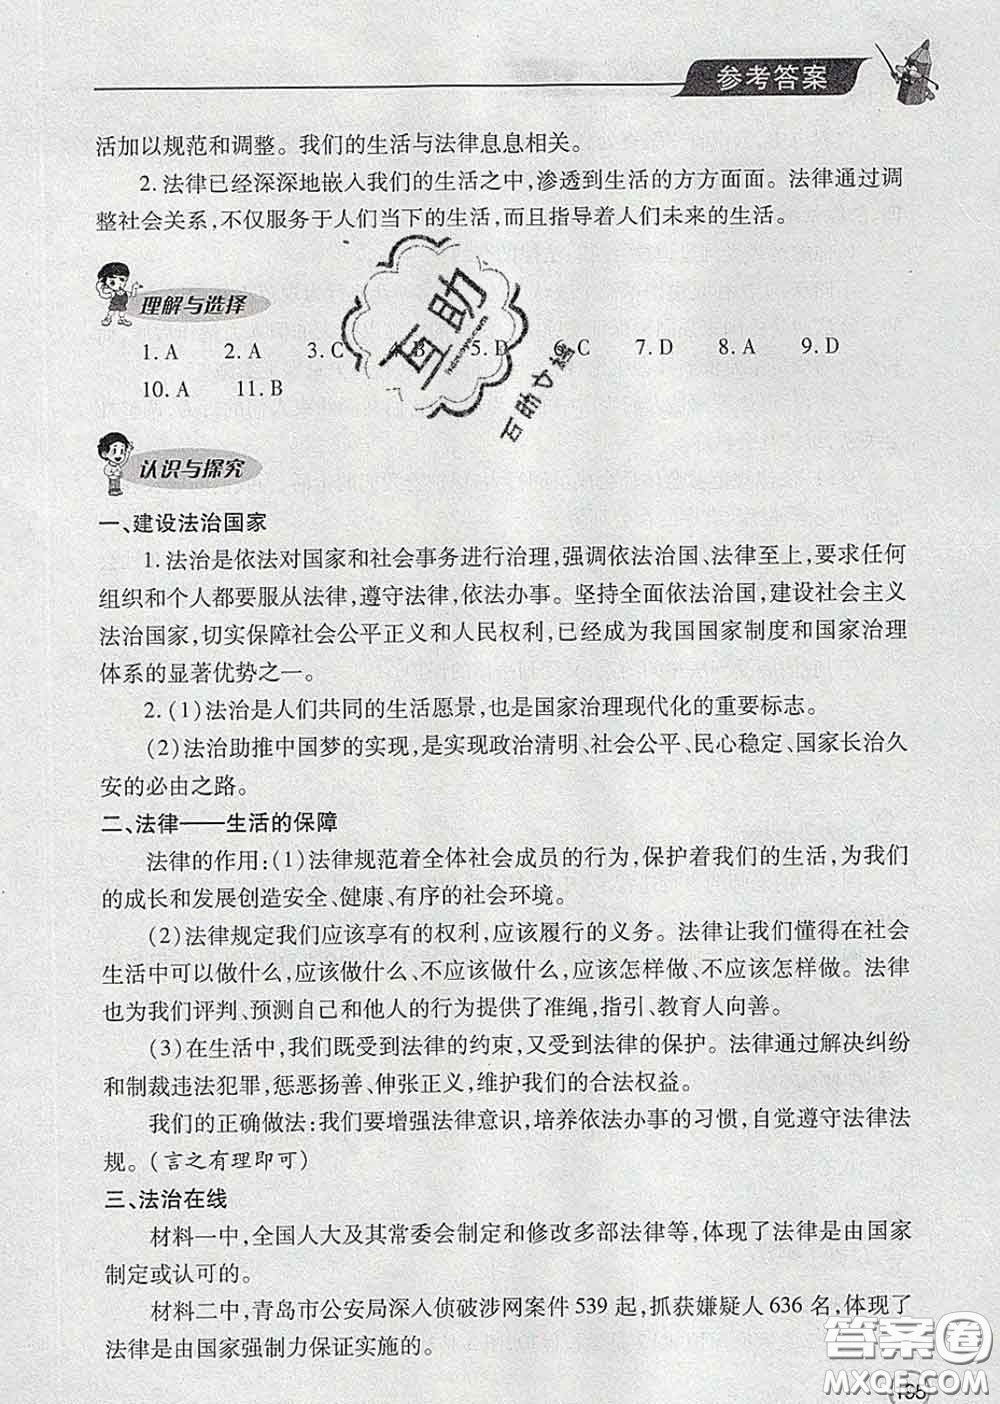 参考答案
活加以规范和调整。我们的生活与法律息息相关。
2. 法律已经深深地嵌入我们的生活之中,渗透到生活的方方面面。法律通过调
整社会关系,不仅服务于人们当下的生活,而且指导着人们未来的生活。
理解与选择
1. A 2. A 3. C B 5. D 6. C 7. D 8. A 9. D
10. A 11. B
互助
认识与探究
一、建设法治国家
1. 法治是依法对国家和社会事务进行治理,强调依法治国、法律至上,要求任何
组织和个人都要服从法律,遵守法律,依法办事。坚持全面依法治国,建设社会主义
法治国家,切实保障社会公平正义和人民权利,已经成为我国国家制度和国家治理
体系的显著优势之一。
2. (1)法治是人们共同的生活愿景,也是国家治理现代化的重要标志。
(2)法治助推中国梦的实现,是实现政治清明、社会公平、民心稳定、国家长治久
安的必由之路。
二、法律——生活的保障
法律的作用:(1)法律规范着全体社会成员的行为,保护着我们的生活,为我们
的成长和发展创造安全、健康、有序的社会环境。
(2)法律规定我们应该享有的权利,应该履行的义务。法律让我们懂得在社会
生活中可以做什么,应该做什么、不应该做什么,应该怎样做、不应该怎样做。法律
也为我们评判、预测自己和他人的行为提供了准绳,指引、教育人向善。
(3)在生活中,我们既受到法律的约束,又受到法律的保护。法律通过解决纠纷
和制裁违法犯罪,惩恶扬善、伸张正义,维护我们的合法权益。
我们的正确做法:我们要增强法律意识,培养依法办事的习惯,自觉遵守法律法
规。(言之有理即可)
三、法治在线
材料一中,全国人大及其常委会制定和修改多部法律等,体现了法律是由国家
制定或认可的。
材料二中,青岛市公安局深入侦破涉网案件 539 起,抓获嫌疑人 636 名,体现了
法律是由国家强制力保证实施的。
答案圈
MXQE.COM
195